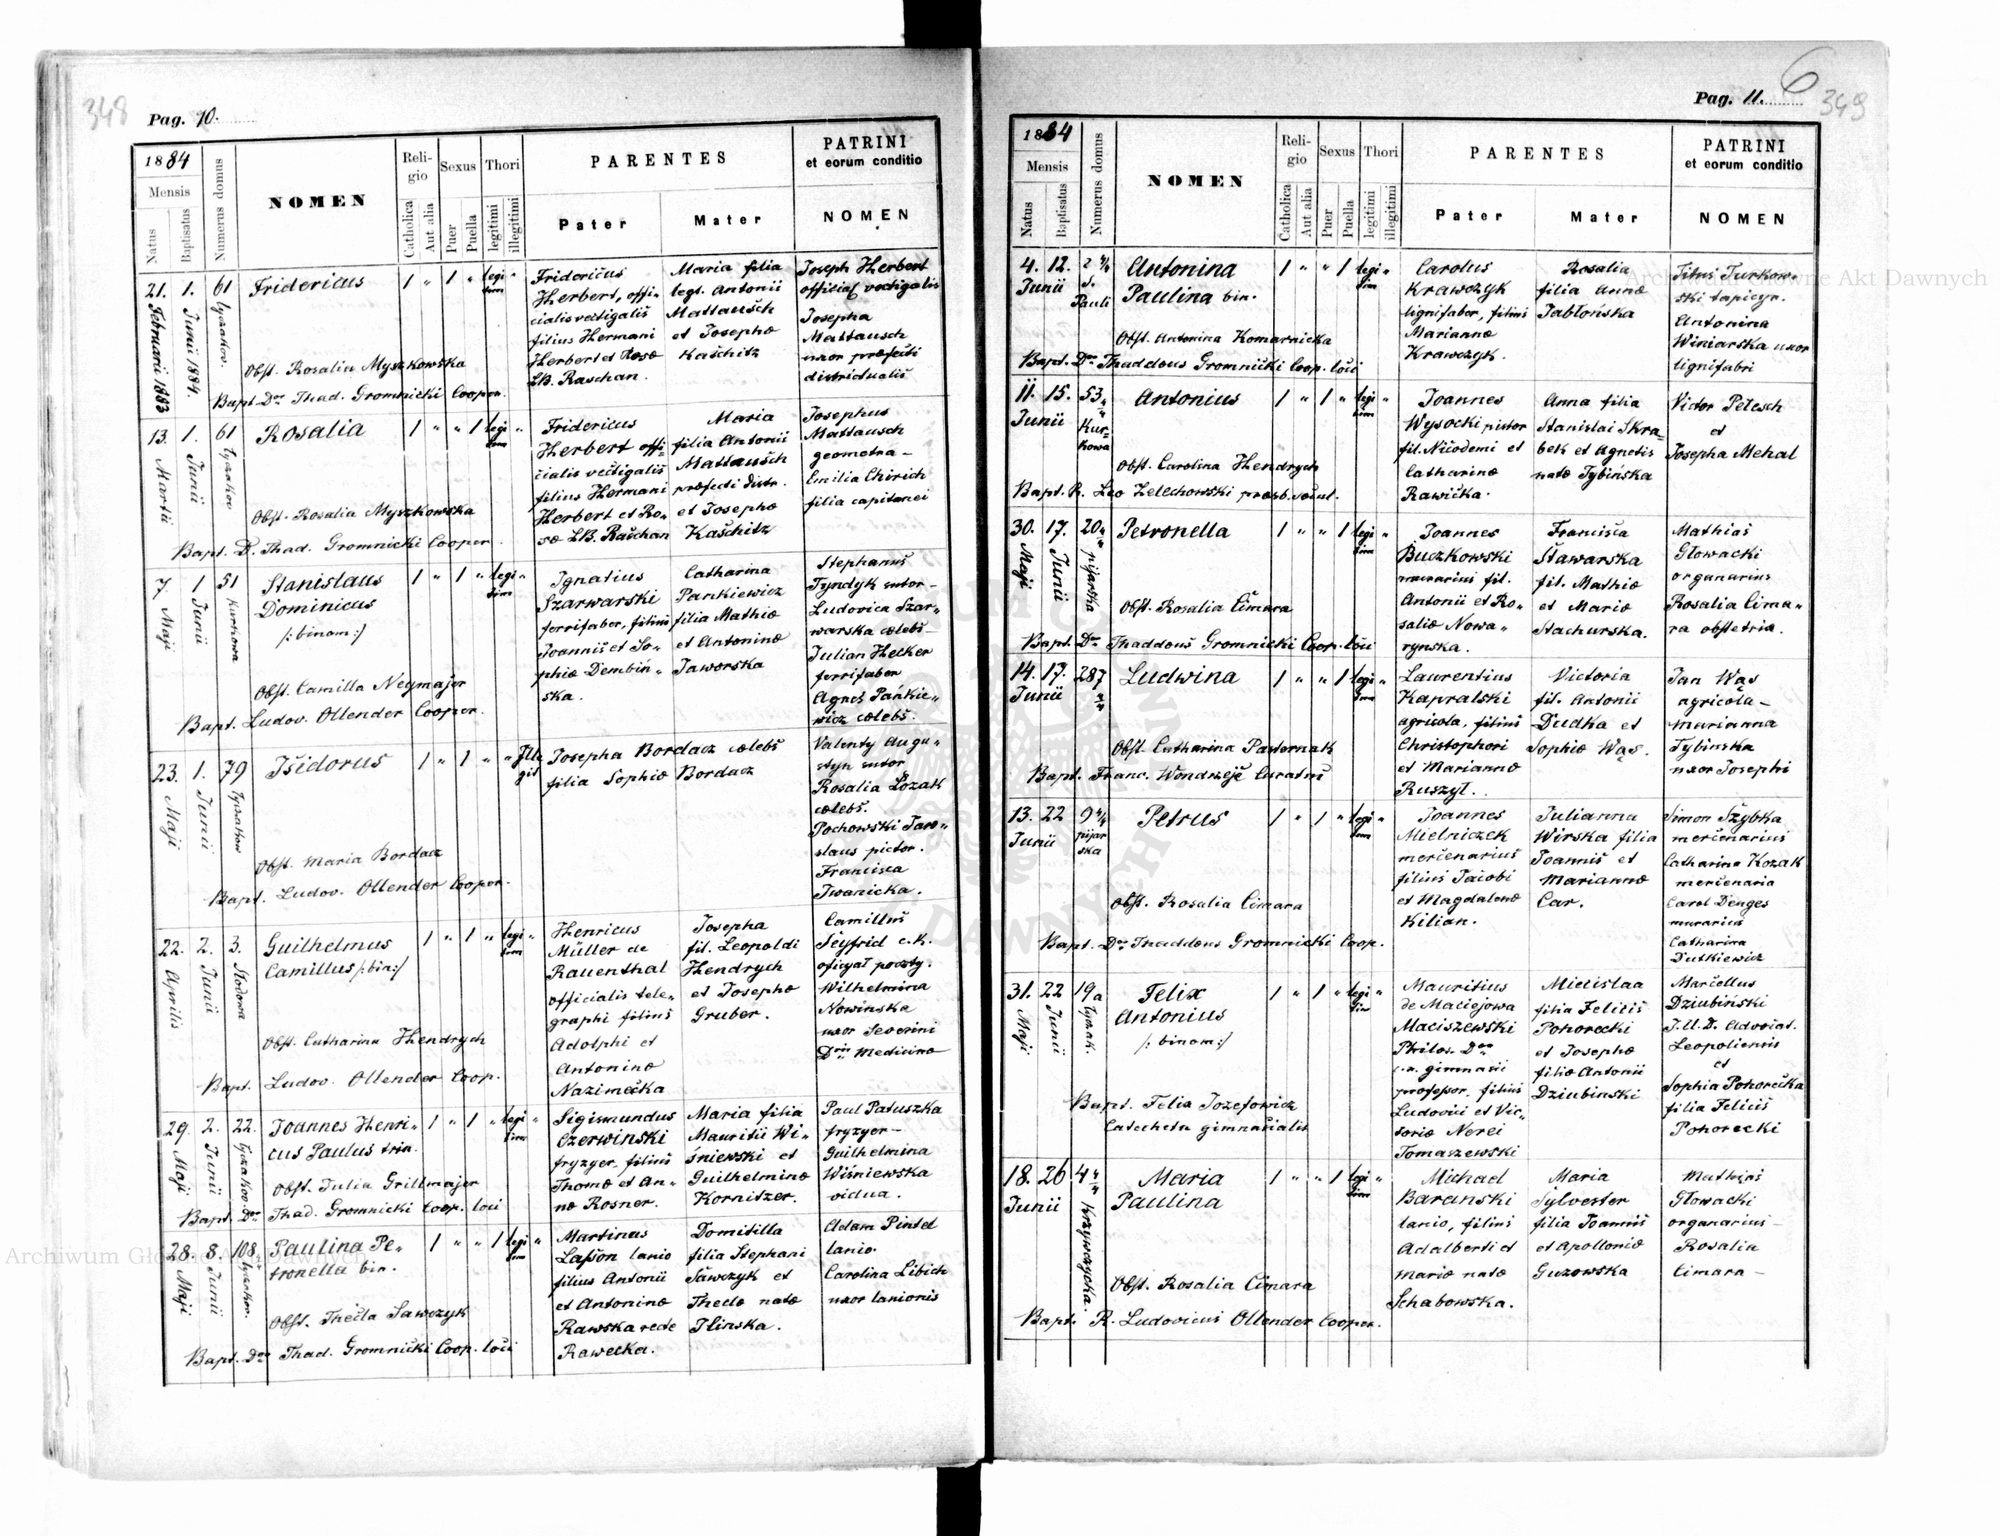 348
Pag. 10.
1884
Mensis
Natus
Baptisatus
Numerus domus
NOMEN
Reli-
gio
Catholica
Aut alia
Sexus
Puer
Puella
Thori
legitimi
illegitimi
PARENTES
Pater
Mater
PATRINI
et eorum conditio
NOMEN
21. Februarii 1883
1. Junii 1884.
61 Łyczakov.
Fridericus
1 " 1 " legi "
tim
Obst. Rosalia Myszkowska
Bapt. Dnus Thad. Gromnicki Cooper.
Fridericus
Herbert, offi-
cialis vectigalis
filius Hermani
Herbert et Rosæ
LB. Raschan.
Maria filia
legt. Antonii
Mattausch
et Josephæ
Kaschitz
Joseph Herbert
official vectigalis
Josepha
Mattausch
uxor præfecti
districtualis
13. Martii
1. Junii
61 Łyczakov
Rosalia
1 " " 1 legi "
tim
Obst. Rosalia Myszkowska
Bapt. D. Thad. Gromnicki Cooper.
Fridericus
Herbert offi-
cialis vectigalis
filius Hermani
Herbert et Ro-
sæ LB. Raschan
Maria
filia Antonii
Mattausch
præfecti distr.
et Josephæ
Kaschitz
Josephus
Mattausch
geometra -
Emilia Chirich
filia capitanei
7. Maji
1 Junii
51 Kurkowa
Stanislaus
Dominicus
/: binom :/
1 " 1 " legi "
tim
Obst. Camilla Neymajer
Bapt. Ludov. Ollender Cooper.
Ignatius
Szarwarski
ferrifaber, filius
Joannis et So-
phiæ Dembiń-
ska.
Catharina
Pankiewicz
filia Mathiæ
et Antoninæ
Jaworska
Stephanus
Tyndyk sutor -
Ludovica Szar-
warska cælebs -
Julian Hecker
ferrifaber
Agnes Pańkie-
wicz cælebs.
23. Maji
1. Junii
79 Łyczakow
Isidorus
1 " 1 " " Ille
git
Obst. Maria Bordacz
Bapt. Ludov. Ollender Cooper.
Josepha Bordacz cælebs
filia Sophiæ Bordacz
Valenty Augu-
styn sutor
Rosalia Łozak
cælebs.
Pochowski Jaro-
slaus pictor.
Francisca
Iwanicka.
22. Aprilis
2. Junii
3. Słodowa
Guilhelmus
Camillus /: bin :/
1 " 1 " legi "
tim
Obst. Catharina Hendrych
Bapt. Ludov. Ollender Coop.
Henricus
Müller de
Rauenthal
officialis tele-
graphi filius
Adolphi et
Antoninæ
Nazimecka
Josepha
fil. Leopoldi
Hendrych
et Josephæ
Gruber.
Camillus
Seyfrid c.k.
oficyał poczty.
Wilhelmina
Nowińska
uxor Severini
Dris Medicinæ
29. Maji
2. Junii
22. Łyczakov
Joannes Henri-
cus Paulus trin.
1 " 1 " legi "
tim
Obst. Julia Grillmajer
Bapt. Dnus Thad. Gromnicki Coop. loci
Sigismundus
Czerwinski
fryzyer, filius
Thomæ et An-
næ Rosner.
Maria filia
Mauritii Wi-
śniewski et
Guilhelminæ
Kornitzer.
Paul Patuszka
fryzyer -
Guilhelmina
Wiśniewska
vidua.
28. Maji
8. Junii
108. Łyczakov.
Paulina Pe-
tronella bin.
1 " " 1 legi "
tim
Obst. Thecla Sawczyk
Bapt. Dnus Thad. Gromnicki Coop. loci
Martinus
Lasson lanio
filius Antonii
et Antoninæ
Rawska rede
Rawecka.
Domitilla
filia Stephani
Sawczyk et
Theclæ natæ
Ilinska.
Adam Pintel
lanio.
Carolina Libich
uxor lanionis
6
Pag. 11.
349
1884
Mensis
Natus
Baptisatus
Numerus domus
NOMEN
Reli-
gio
Catholica
Aut alia
Sexus
Puer
Puella
Thori
legitimi
illegitimi
PARENTES
Pater
Mater
PATRINI
et eorum conditio
NOMEN
4. 12.
Junii
S.
Pauli
Antonina
Paulina bin.
1 " " 1 legi "
tim
Obst. Antonina Komarnicka
Bapt. Dnus Thaddeus Gromnicki Coop. loci
Carolus
Krawczyk
lignifaber, filius
Mariannæ
Krawczyk.
Rosalia
filia Annæ
Jabłońska
Titus Turkow-
ski tapicyr.
Antonina
Winiarska uxor
lignifabri
11. 15. 53
Junii
Kur-
kowa
Antonius
1 " 1 " legi "
tim
Obst. Carolina Hendrych
Bapt. R. Leo Zelechowski presb. sæcul.
Joannes
Wysocki pistor
fil. Nicodemi et
Catharinæ
Rawicka.
Anna filia
Stanislai Skra-
bek et Agnetis
natæ Tybińska
Victor Petesch
et
Josepha Mehal
30. Maji
17. Junii
20 pijarska
Petronella
1 " " 1 legi "
tim
Obst. Rosalia Cimara
Bapt. Dnus Thaddeus Gromnicki Coop. loci
Joannes
Buczkowski
murarius fil.
Antonii et Ro-
saliæ Nowa-
rynska.
Francisca
Stawarska
fil. Mathiæ
et Mariæ
Stachurska.
Mathias
Głowacki
organarius
Rosalia Cima-
ra obstetria.
14. 17. 287
Junii
Ludwina
1 " " 1 legi "
tim
Obst. Catharina Pasternak
Bapt. Franc. Wondrzejč Curatus
Laurentius
Kapralski
agricola, filius
Christophori
et Mariannæ
Ruszył.
Victoria
fil. Antonii
Dudka et
Sophiæ Wąs.
Jan Wąs
agricola -
Marianna
Tybinska
uxor Josephi
13. 22 9 2/4
Junii
pijar
ska
Petrus
1 " 1 " legi "
tim
Obst. Rosalia Cimara
Bapt. Dnus Thaddeus Gromnicki Coop.
Joannes
Mielniczek
mercenarius
filius Jacobi
et Magdalenæ
Kilian.
Julianna
Wirska filia
Joannis et
Mariannæ
Car.
Simon Szybka
mercenarius
Catharina Kozak
mercenaria
Carol Denges
murarius
Catharina
Dutkiewicz
31. Maji
22 Junii
19a Łyczak.
Felix
Antonius
/: binom :/
1 " 1 " legi "
tim
Bapt. Felix Jozefowicz
Catecheta gimnasialis
Mauritius
de Maciejowa
Maciszewski
Philos. Dor
c.r. gimnasii
professor, filius
Ludovici et Vic-
toriæ Nerei
Tomaszewski
Miecislaa
filia Felicis
Pohorecki
et Josephæ
filiæ Antonii
Dziubinski
Marcellus
Dziubiński
J.U.D. Advocat.
Leopoliensis
et
Sophia Pohorecka
filia Felicis
Pohorecki
18. 26 4
Junii
Krzywczycka.
Maria
Paulina
1 " " 1 legi "
tim
Obst. Rosalia Cimara
Bapt. R. Ludovicus Ollender Cooper.
Michael
Baranski
lanio, filius
Adalberti et
Mariæ natæ
Schabowska.
Maria
Sylvester
filia Joannis
et Apolloniæ
Guzowska
Mathias
Głowacki
organarius -
Rosalia
Cimara -
Archiwum Główne Akt Dawnych
Archiwum Główne Akt Dawnych